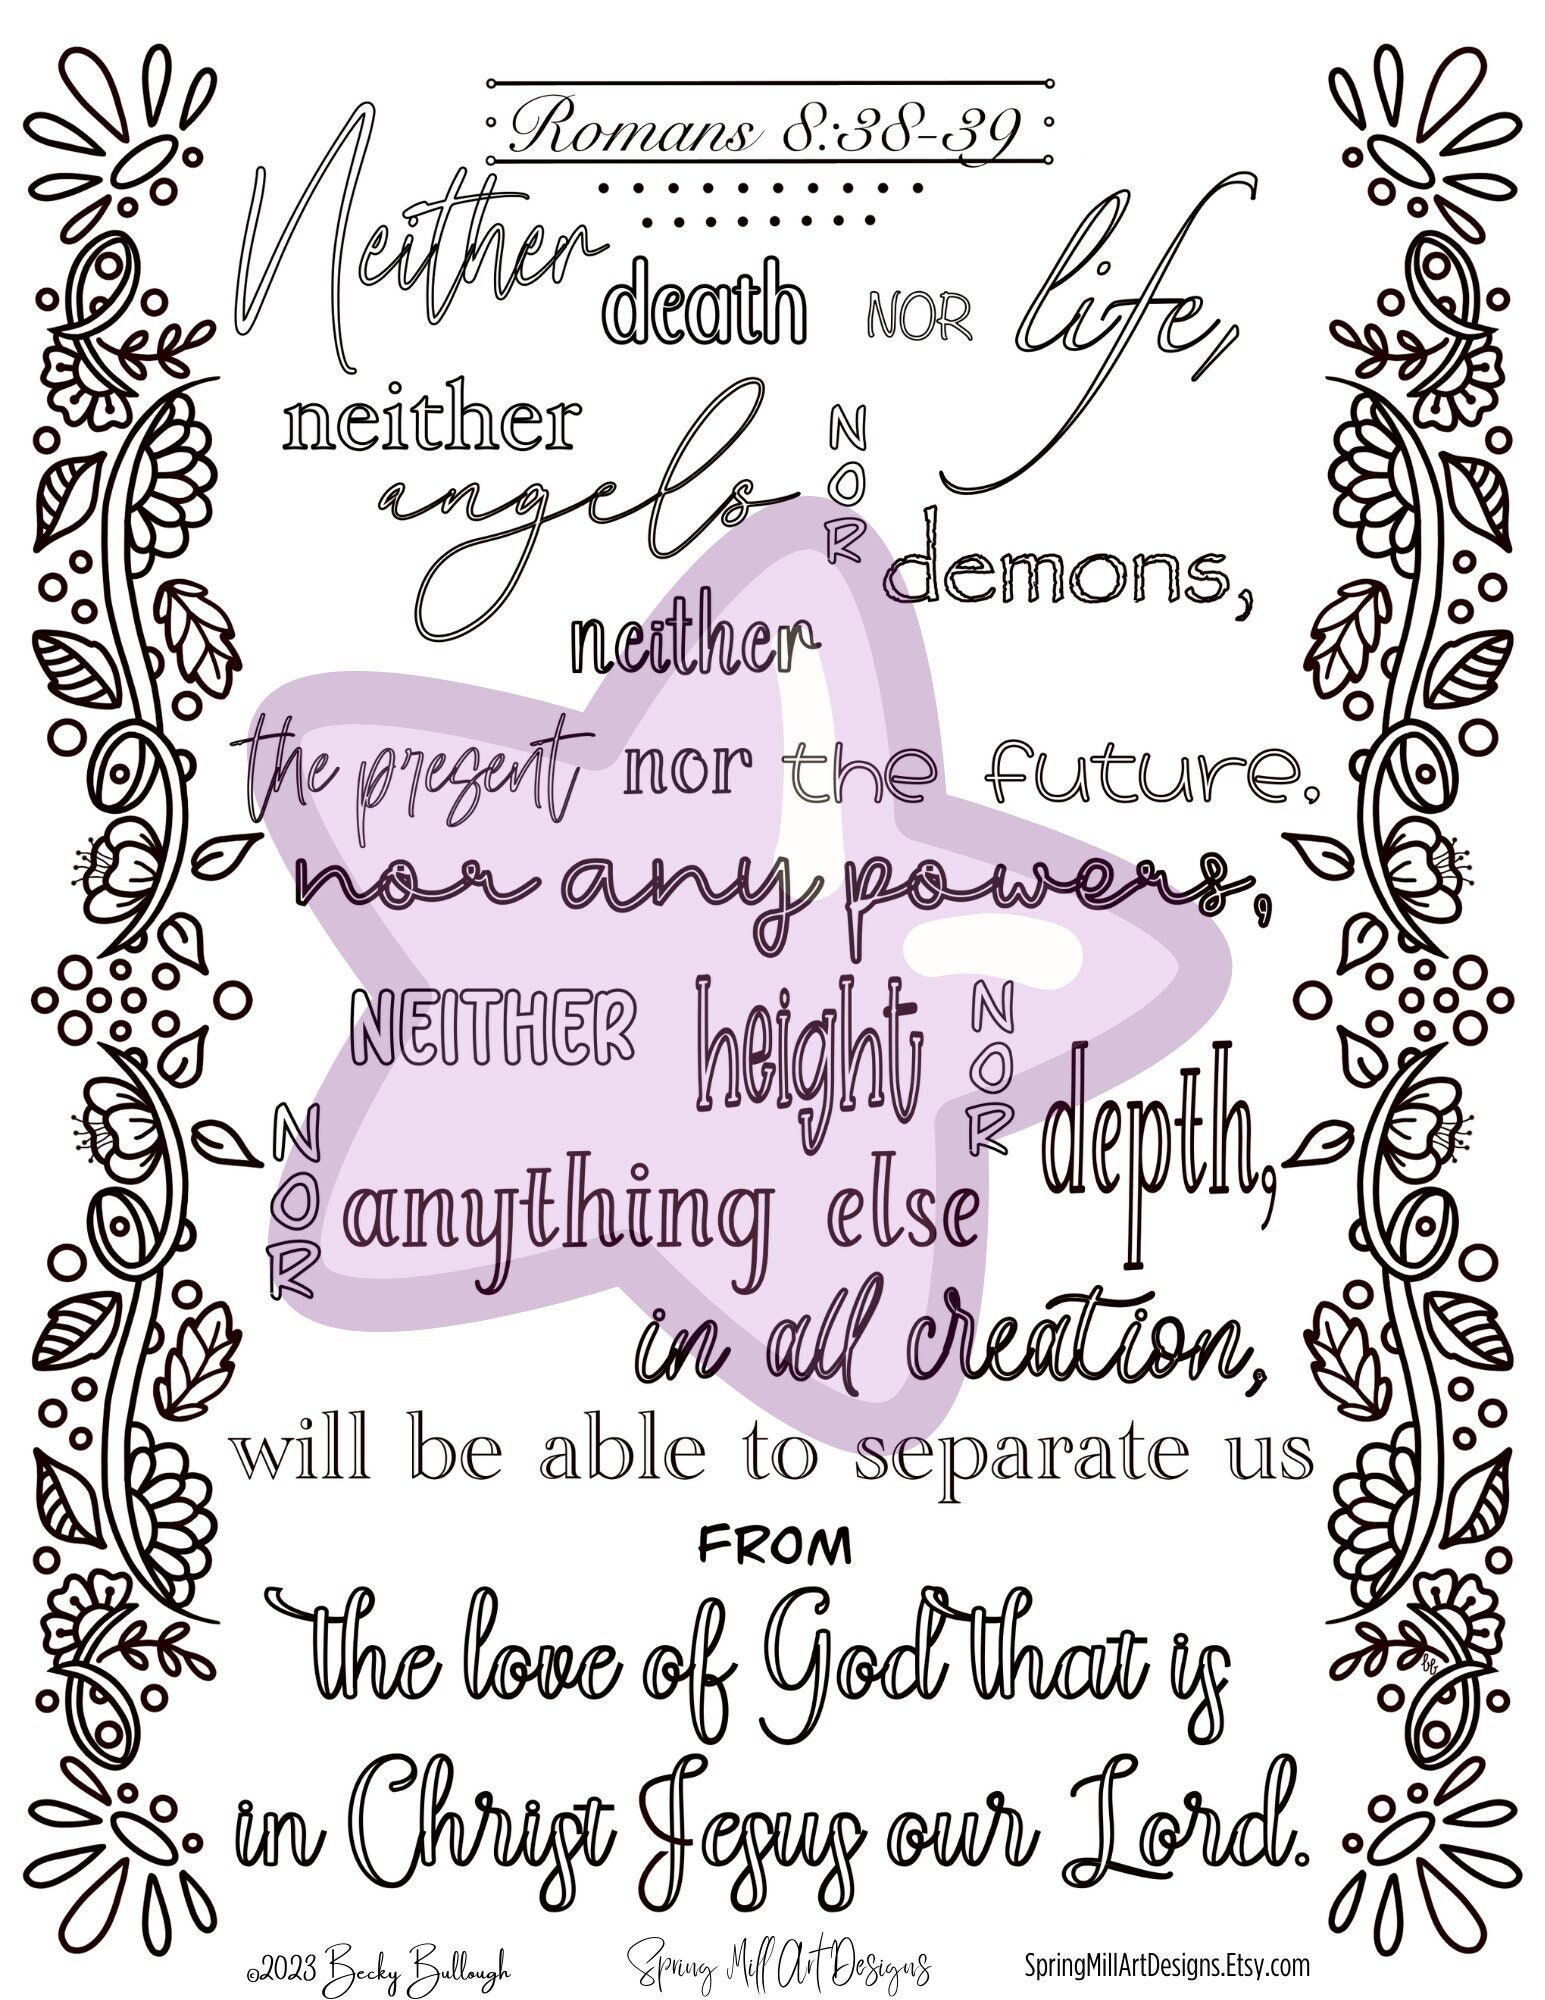 Romans 8:38-39
Neither death NOR life,
neither angels NOR demons,
neither
the present nor the future,
nor any powers,
NEITHER height NOR depth,
NOR anything else
in all creation,
will be able to separate us
FROM
the love of God that is
in Christ Jesus our Lord.
bb
©2023 Becky Bullough Spring Mill Art Designs SpringMillArtDesigns.Etsy.com